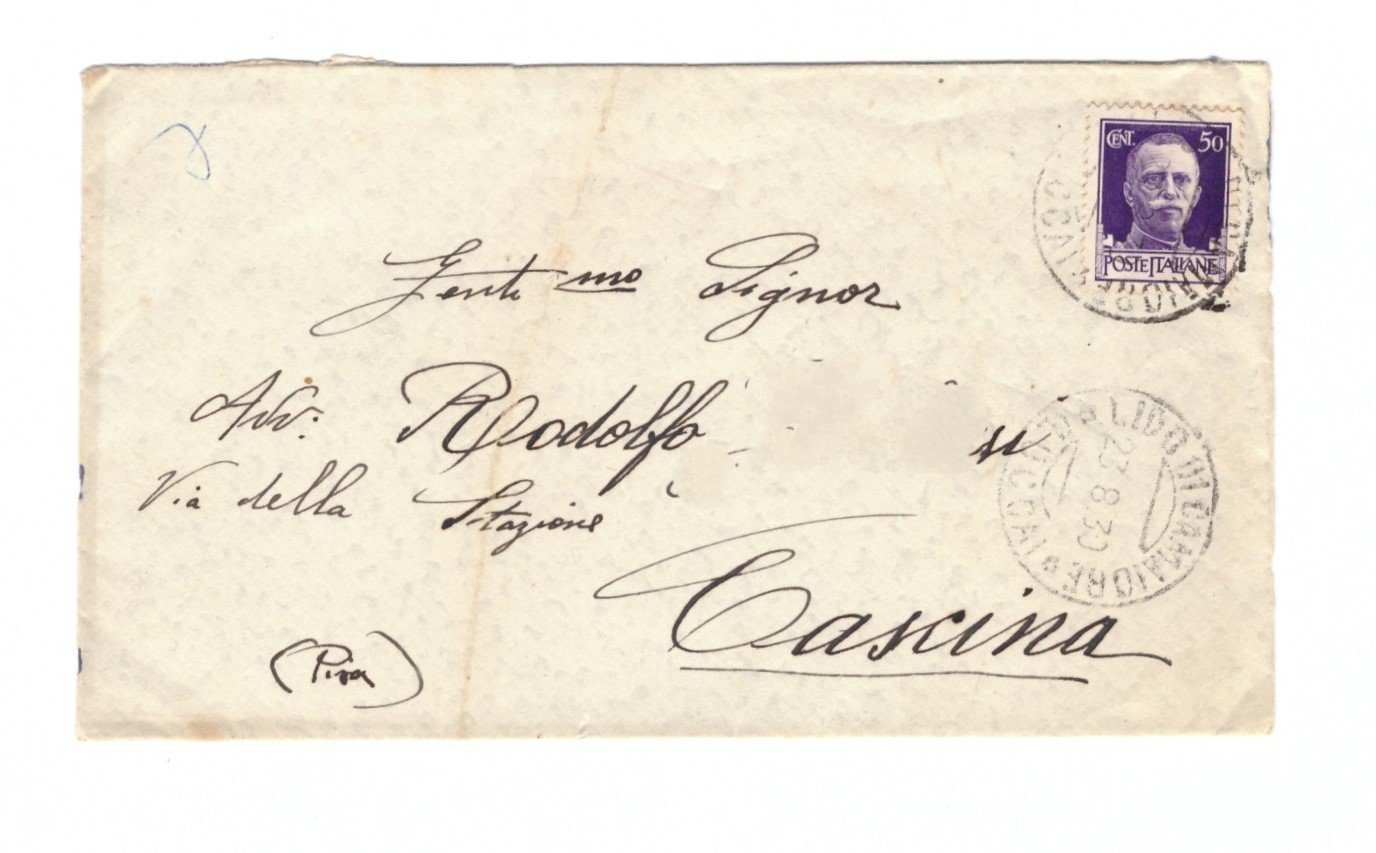 CENT. 50
POSTE ITALIANE
Gentmo Signor
Avv. Rodolfo
Via della Stazione
Cascina
(Pisa)
LIDO DI CAMAIORE (LUCCA)
23.8.30